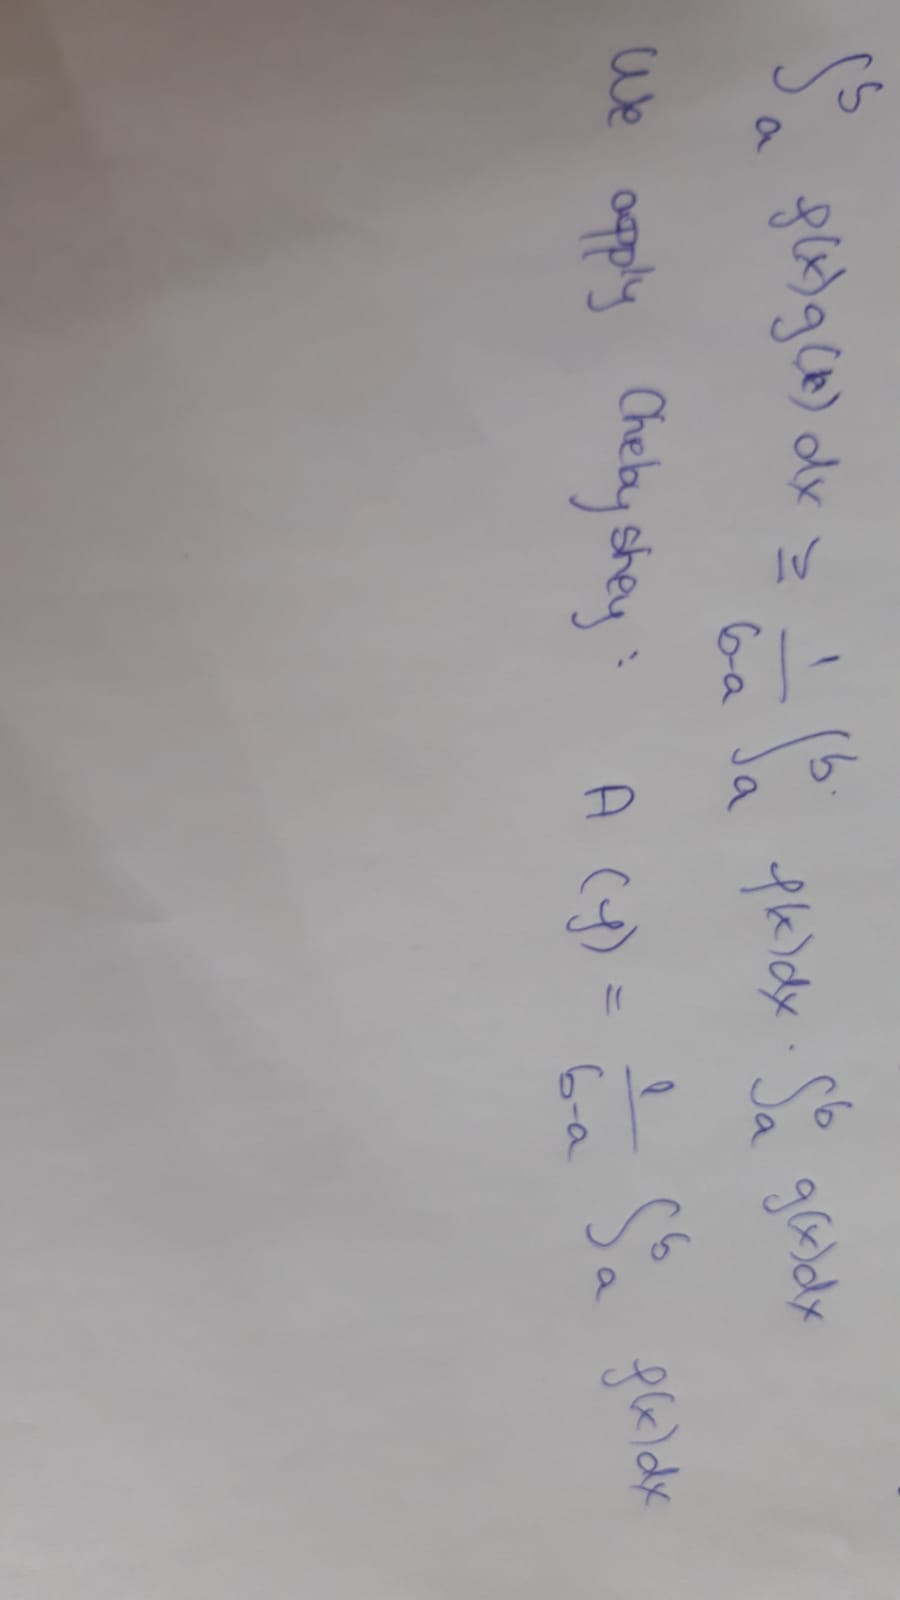 ∫ₐᵇ f(x)g(x) dx ≥ 1/(b-a) ∫ₐᵇ f(x)dx · ∫ₐᵇ g(x)dx
We apply Chebyshey: A (f) = 1/(b-a) ∫ₐᵇ f(x)dx